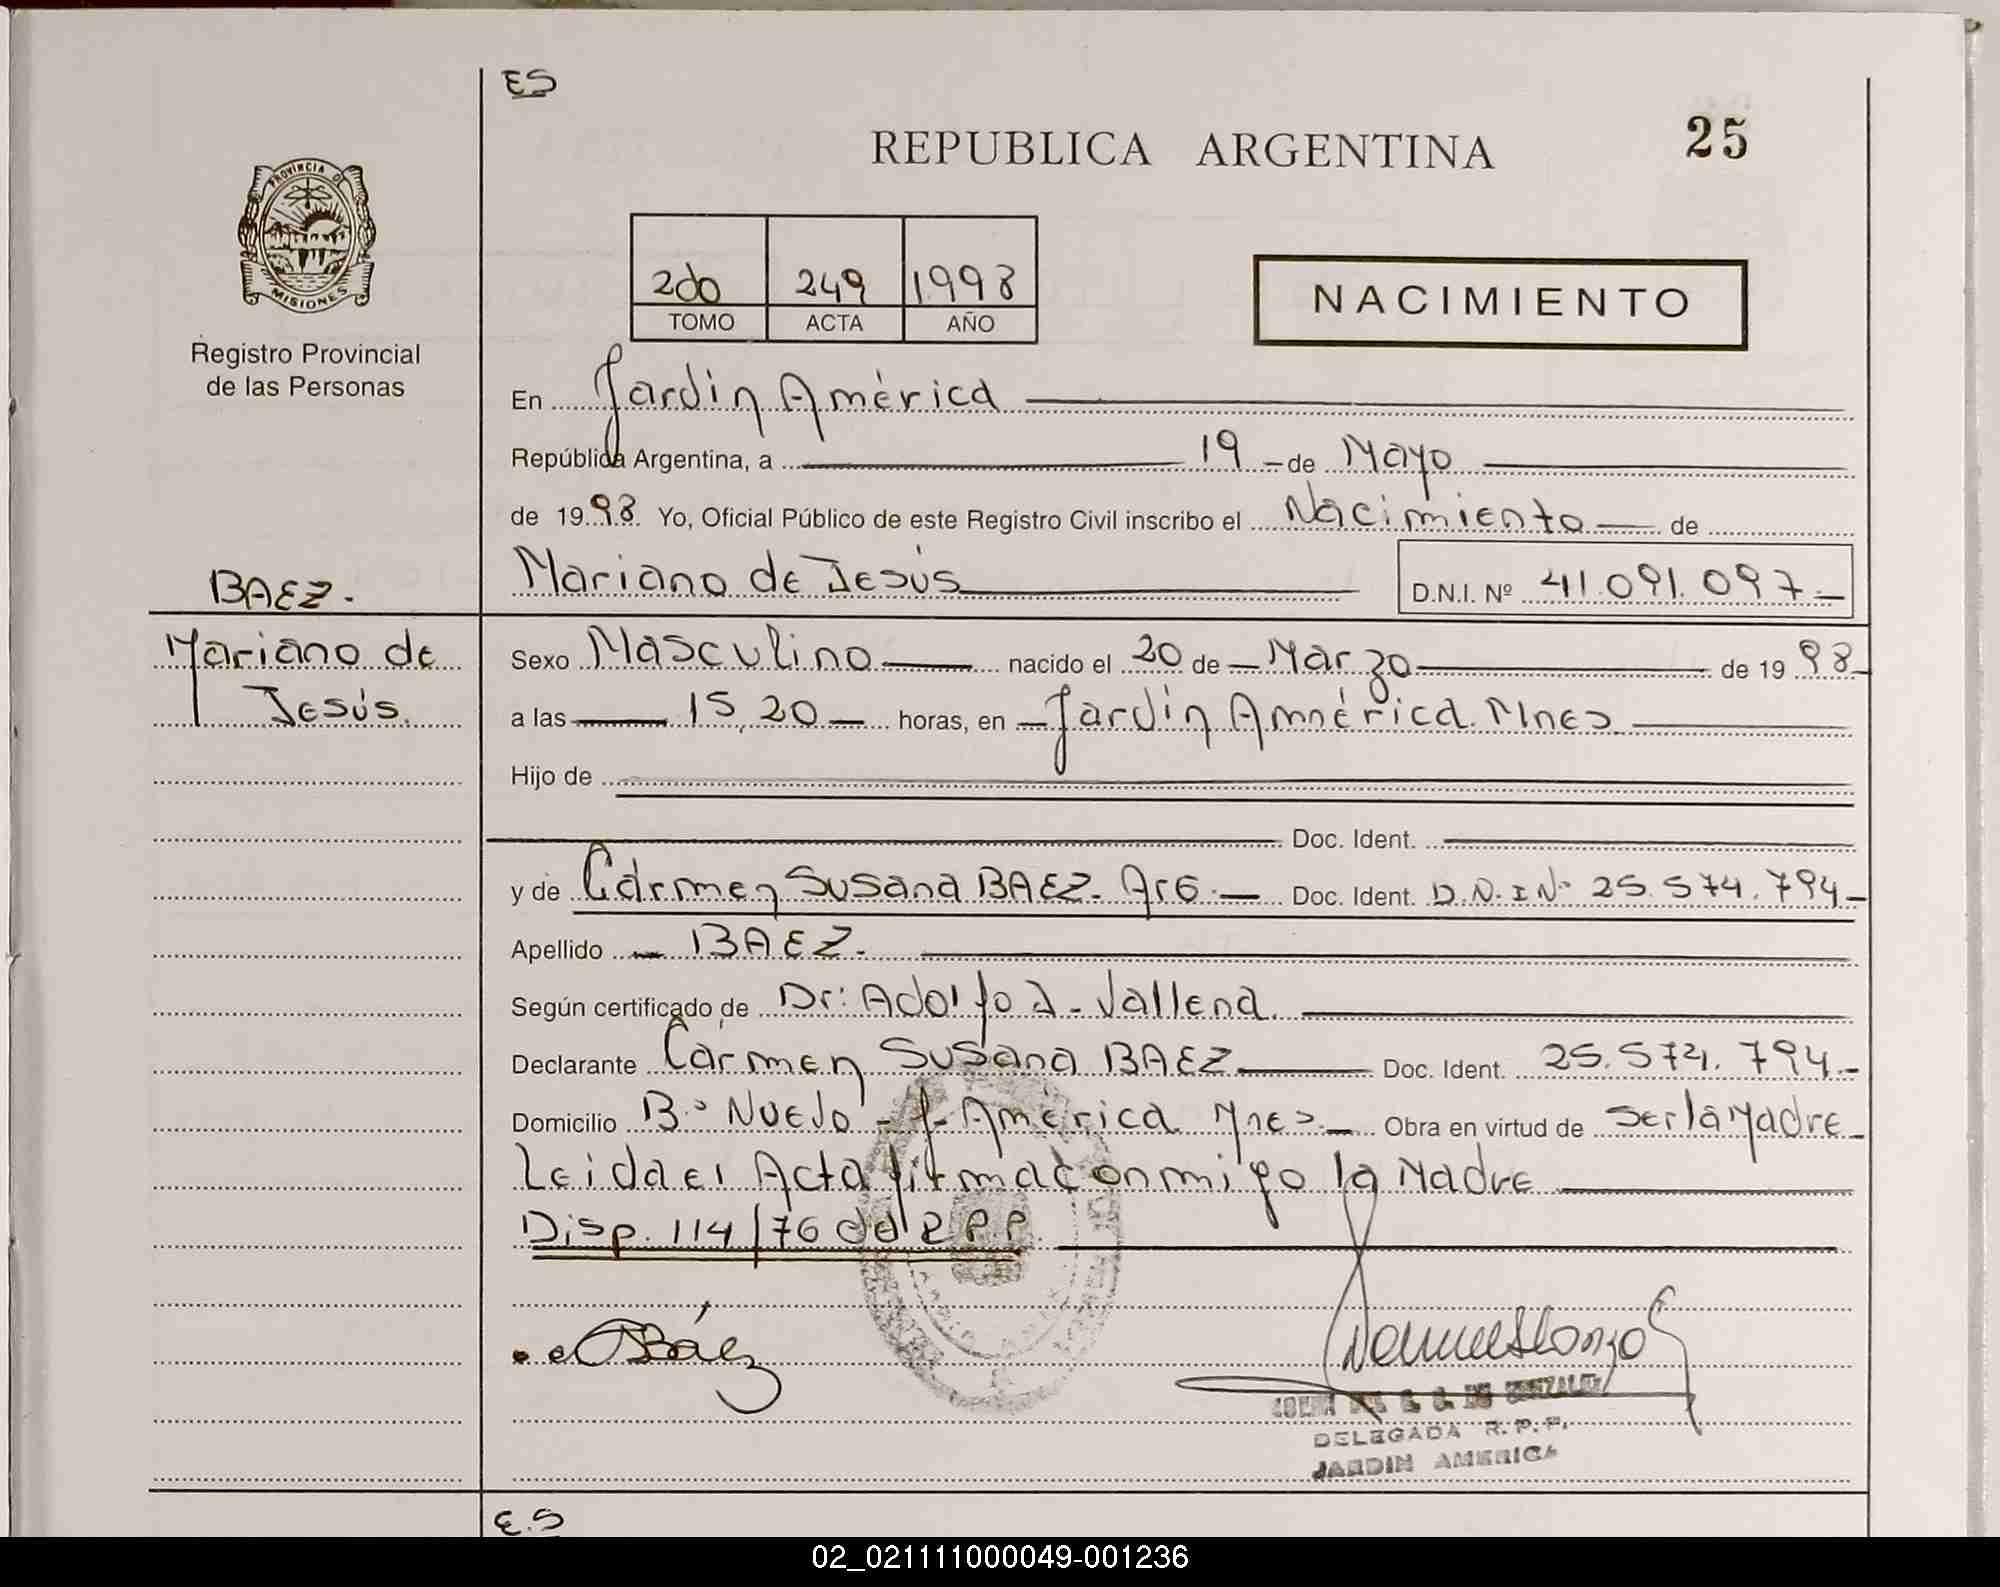 ES
REPUBLICA ARGENTINA
25
PROVINCIA DE
MISIONES
Registro Provincial
de las Personas
2do 249 1998
TOMO ACTA AÑO
NACIMIENTO
En Jardín América
República Argentina, a 19 de Mayo
de 1998. Yo, Oficial Público de este Registro Civil inscribo el Nacimiento de
Mariano de Jesús D.N.I. Nº 41.091.097.-
BAEZ.
Mariano de
Jesús.
Sexo Masculino nacido el 20 de Marzo de 1998
a las 15,20 horas, en Jardín América. Mnes
Hijo de
Doc. Ident.
y de Carmen Susana BAEZ. Arg. Doc. Ident. D.N.I Nº 25.574.794
Apellido BAEZ.
Según certificado de Dr: Adolfo J. Vallena.
Declarante Carmen Susana BAEZ Doc. Ident. 25.574.794.-
Domicilio Bº Nuevo - J. América Mnes. Obra en virtud de ser la Madre
Leida el Acta firma conmigo la Madre
Disp. 114/76 del R P P.
Báez
DE GONZALEZ
DELEGADA R.P.P.
JARDIN AMERICA
E.S
02_021111000049-001236